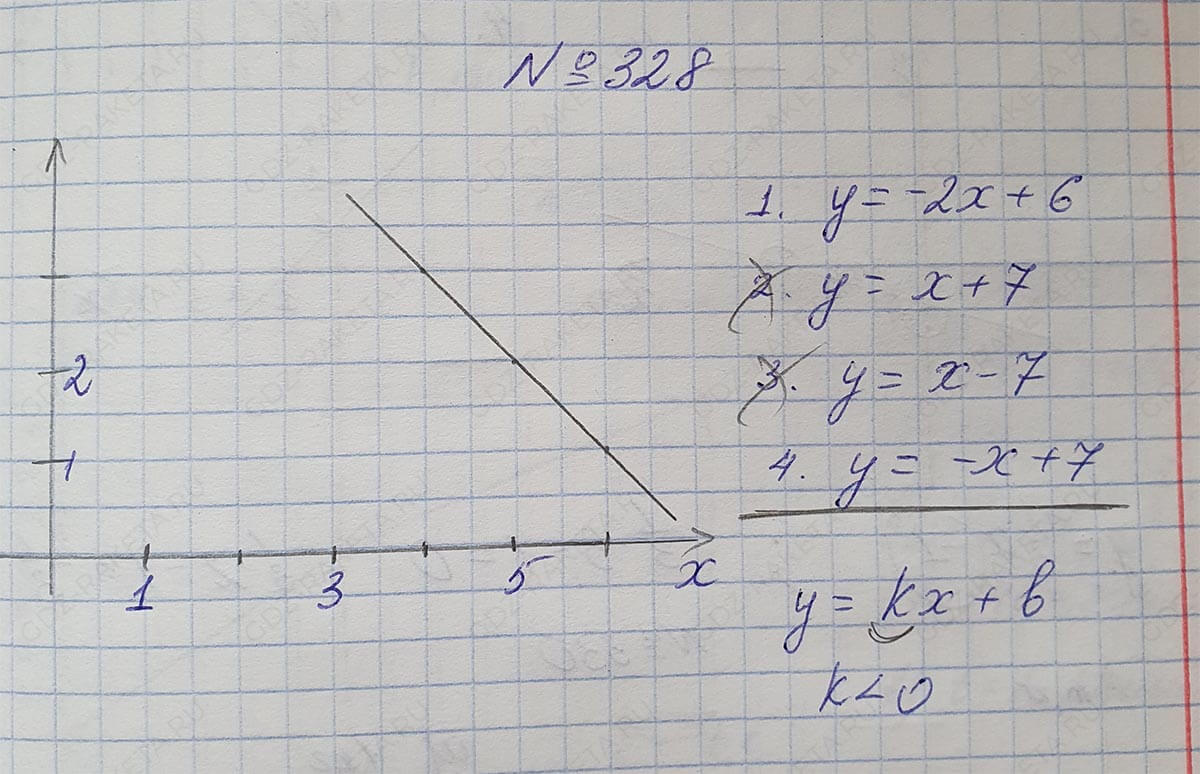 № 328
1. y = -2x + 6
2. y = x + 7
3. y = x - 7
4. y = -x + 7
y = kx + b
k < 0
2
1
1 3 5 x